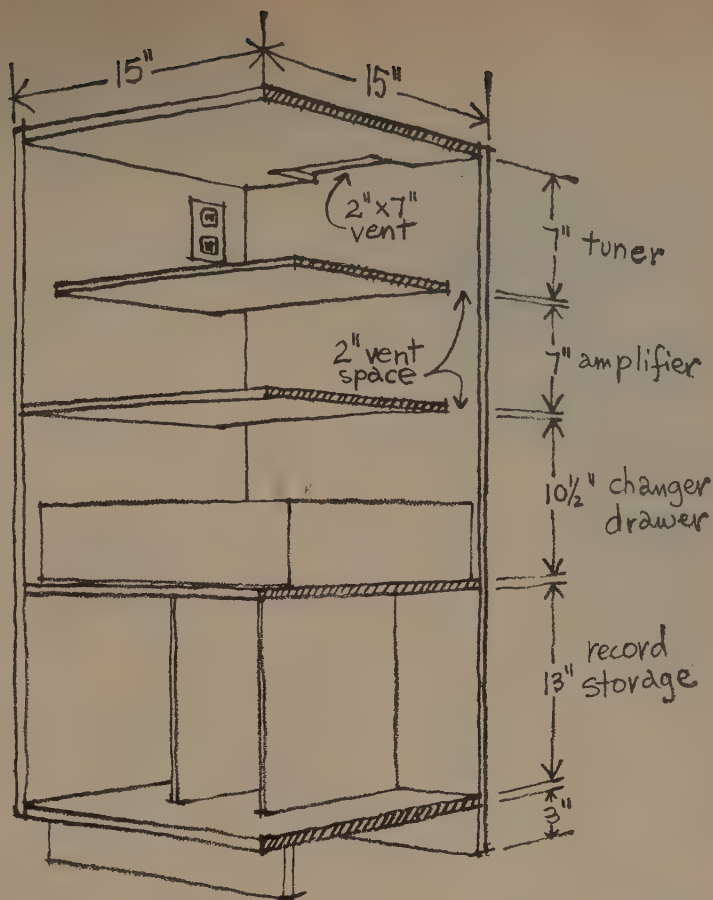 15"
15"
2"x7"
vent
7" tuner
2" vent
space
7" amplifier
10½" changer
drawer
record
13" storage
3"